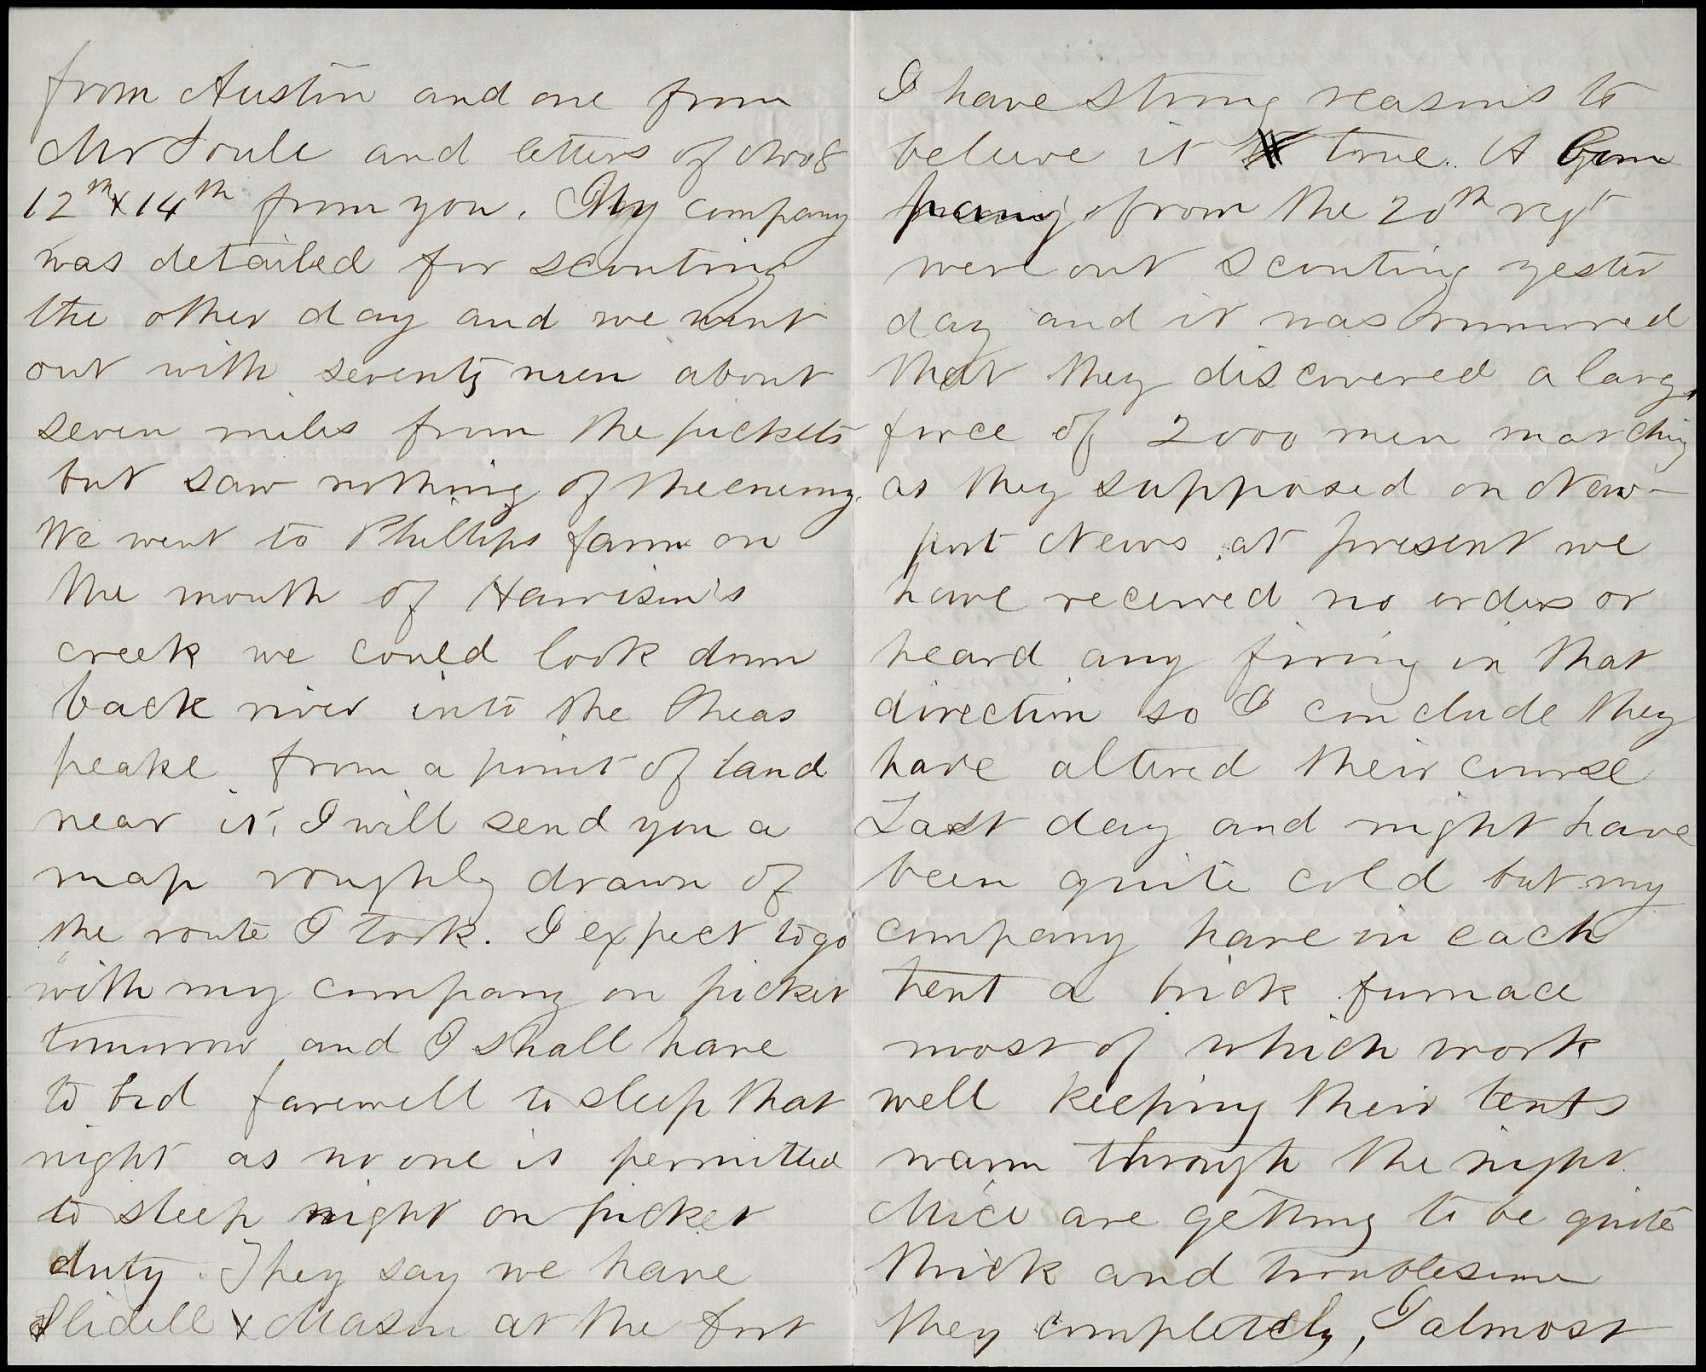 from Austin and one from
Mr Soule and letters of Nov 8
12th & 14th from you. My company
was detailed for scouting
the other day and we went
out with seventy men about
seven miles from the pickets
but saw nothing of the enemy.
We went to Phillips farm on
the mouth of Harrison's
creek we could look down
back river into the Cheas
peake from a point of land
near it, I will send you a
map roughly drawn of
the route I took. I expect to go
with my company on picket
tomorrow and I shall have
to bid farewell to sleep that
night as no one is permitted
to sleep night on picket
duty. They say we have
Slidell & Mason at the fort
I have strong reasons to
beleive it true. A Com
pany from the 20th regt
were out scouting yester
day and it was rumored
that they discovered a large
force of 2000 men marching
as they supposed on New-
port News at present we
have received no orders or
heard any firing in that
direction so I conclude they
have altered their course
Last day and night have
been quite cold but my
company have in each
tent a brick furnace
most of which work
well keeping their tents
warm through the night.
Mice are getting to be quite
thick and troublesome
they completely, I almost